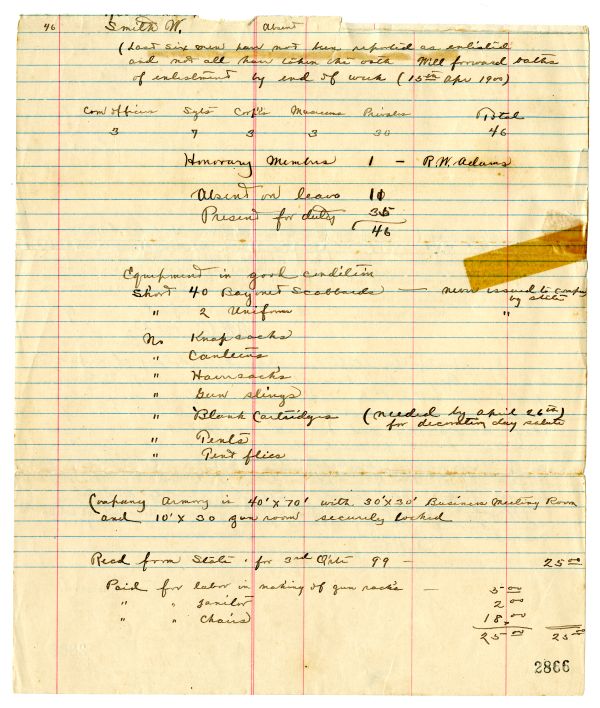 46 Smith W. Absent
(Last six men have not been reported as enlisted
and not all have taken the oath Will forward oaths
of enlistment by end of week (15th Apr 1900)
Com officers Sgts Corpls Musicians Privates Total
3 7 3 3 30 46
Honorary Members 1 - R.W. Adams
Absent on leave 11
Present for duty 35
46
Equipment in good condition
Short 40 Bayonet Scabbards — never issued to company
by state
" 2 Uniforms "
No Knapsacks
" Canteens
" Haversacks
" Gun slings
" Blank Cartridges (needed by April 26th)
for decoration day salute
" Tents
" Tent flies
Company Armory is 40'x70' with 30'x30' Business Meeting Room
and 10'x30 gun room securely locked
Recd from State for 3rd Qrtr 99 — 25 00
Paid for labor in making of gun racks — 5 00
" " janitor 2 00
" " chairs 18.00
25 00 25 00
2866